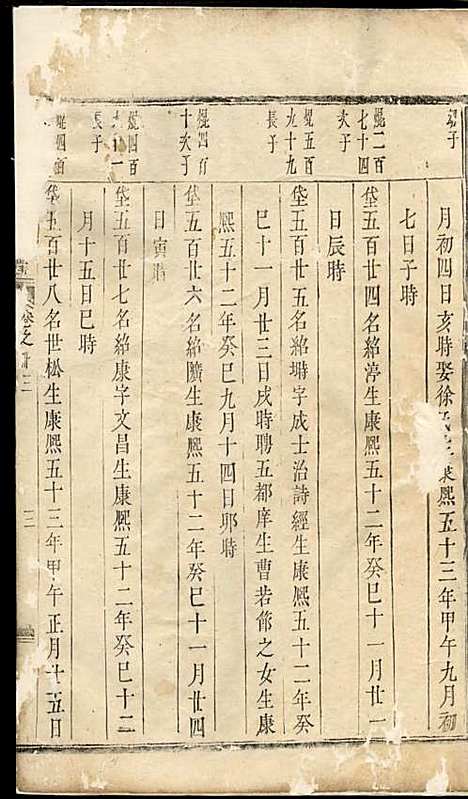 幼子
月初四日亥時娶徐氏生康熙五十三年甲午九月初
七日子時
焜二百
七十四
次子
垡五百廿四名紹渟生康熙五十二年癸巳十一月廿一
日辰時
焜五百
九十九
長子
垡五百廿五名紹塒字成士治詩經生康熙五十二年癸
巳十一月廿三日戌時聘五都庠生曹若節之女生康
熙五十二年癸巳九月十四日卯時
焜四百
十次子
垡五百廿六名紹隮生康熙五十二年癸巳十一月廿四
日寅時
焜四百
長子
垡五百廿七名紹康字文昌生康熙五十二年癸巳十二
月十五日巳時
焜四百
垡五百廿八名世松生康熙五十三年甲午正月十五日
卷之
三